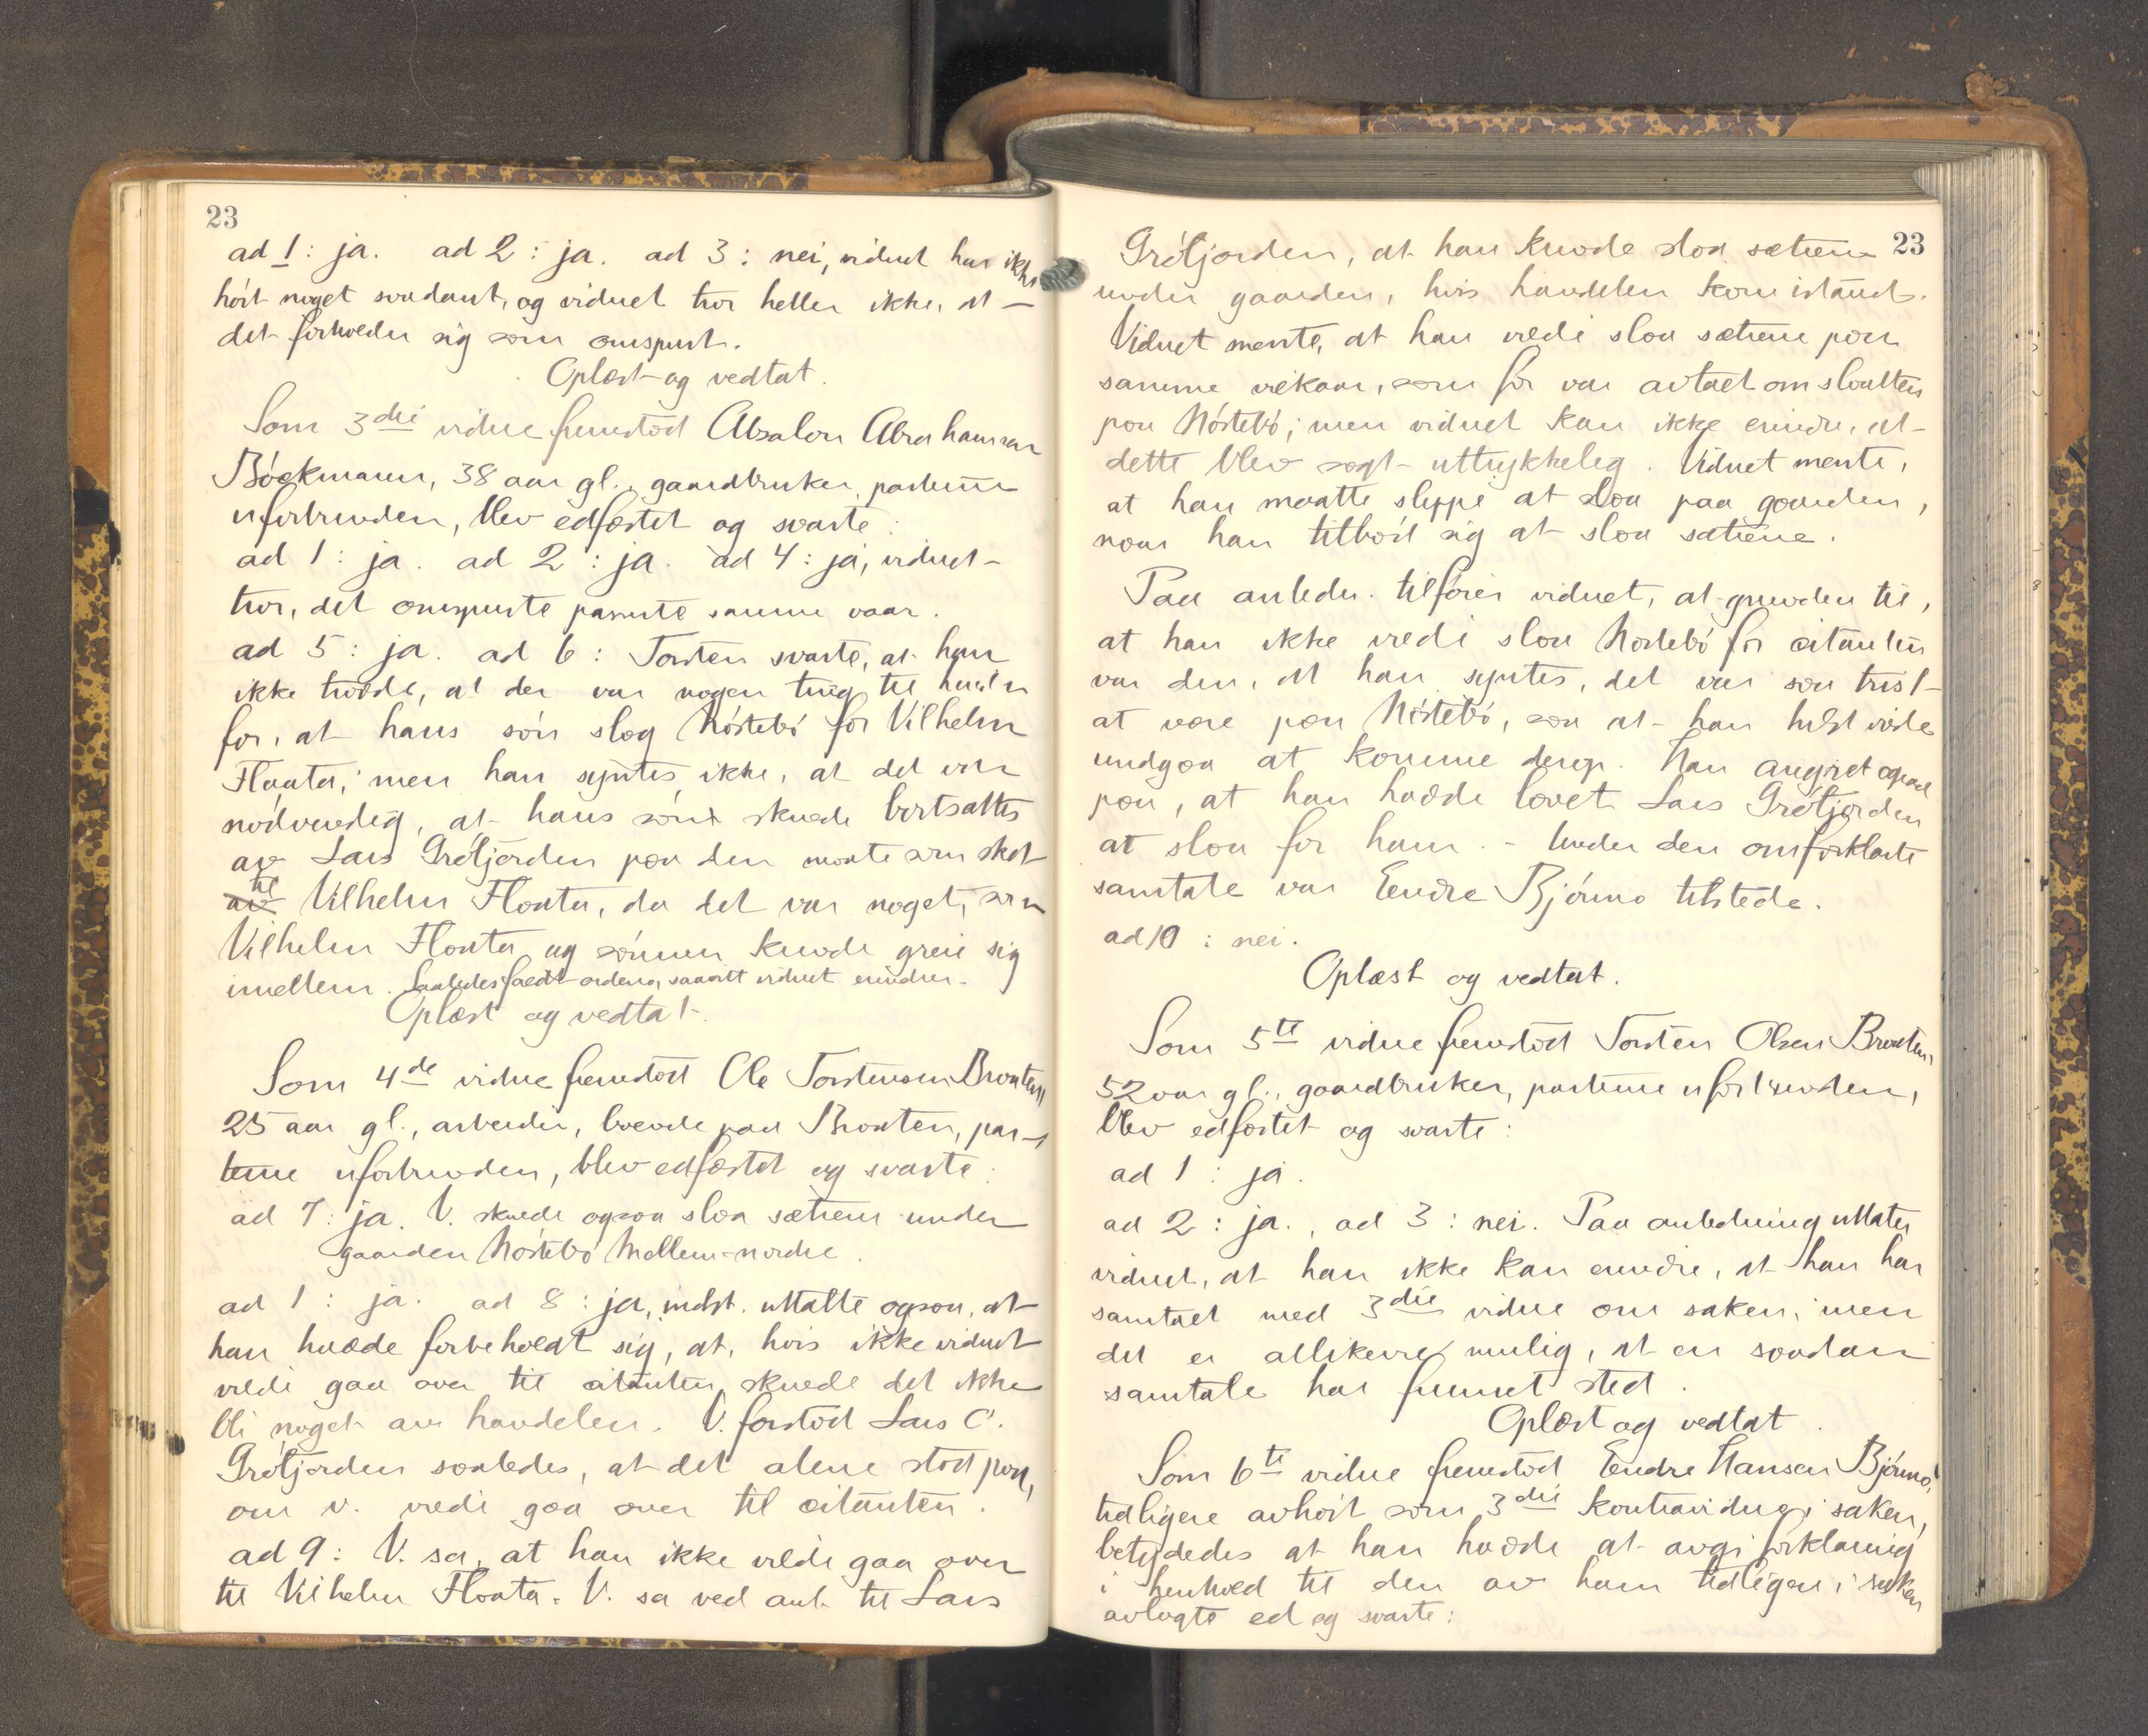 23
ad 1: ja. ad 2: ja. ad 3: nei, vidnet har ikke
hørt noget saadant, og vidnet tror heller ikke, at
det forholder sig som omspurt.
Oplæst og vedtat.
Som 3die vidne fremstod Absalon Abrahamsen
Böckmann, 38 aar gl., gaardbruker, parterne
uforbunden, blev edfæstet og svarte:
ad 1: ja. ad 2: ja. ad 4: ja, vidnet
tror, det omspurte passerte samme vaar.
ad 5: ja. ad 6: Torsten svarte, at han
ikke trodde, at der var nogen ting til hinder
for, at hans søn slog Nöstebö for Vilhelm
Flaata; men han syntes ikke, at det var
nödvendig, at hans søn skulde bortsættes
av Lars Grötjorden paa den maate som sket
til Vilhelm Flaata, da det var noget, som
Vilhelm Flaata og sønnen kunde greie sig
imellem. Saaledes faldt ordene, saavitt vidnet erindrer.
Oplæst og vedtat.
Som 4de vidne fremstod Ole Torstensen Braaten,
25 aar gl., arbeider, boende paa Braaten, par-
terne uforbunden, blev edfæstet og svarte:
ad 7: ja. V. skulde ogsaa slaa sætrene under
gaarden Nöstebö Mellem-nordre.
ad 1: ja. ad 8: ja, indst. uttalte ogsaa, at
han hadde forbeholdt sig, at, hvis ikke vidnet
vilde gaa over til citanten, skulde det ikke
bli noget av handelen. V. forstod Lars O.
Grötjorden saaledes, at det alene stod paa,
om v. vilde gaa over til citanten.
ad 9: V. sa, at han ikke vilde gaa over
til Vilhelm Flaata. V. sa ved anl. til Lars
23
Grötjorden, at han kunde slaa sætrene
under gaarden, hvis handelen kom istand.
Vidnet mente, at han vilde slaa sætrene paa
samme vilkaar, som før var avtalt om slaatten
paa Nöstebö; men vidnet kan ikke erindre, at
dette blev sagt uttrykkelig. Vidnet mente,
at han maatte slippe at slaa paa gaarden,
naar han tilbød sig at slaa sætrene.
Paa anledn. tilføier vidnet, at grunden til,
at han ikke vilde slaa Nöstebö for citanten
var den, at han syntes, det var saa trist
at være paa Nöstebö, saa at han helst vilde
undgaa at komme derop. Han angret ogsaa
paa, at han hadde lovet Lars Grötjorden
at slaa for ham. - Under den omforklarte
samtale var Endre Björmo tilstede.
ad 10: nei.
Oplæst og vedtat.
Som 5te vidne fremstod Torsten Olsen Braaten,
52 aar gl., gaardbruker, parterne uforbunden,
blev edfæstet og svarte:
ad 1: ja.
ad 2: ja., ad 3: nei. Paa anledning uttaler
vidnet, at han ikke kan erindre, at han har
samtalt med 3die vidne om saken; men
det er allikevel mulig, at en saadan
samtale har funnet sted.
Oplæst og vedtat.
Som 6te vidne fremstod Endre Hansen Björmo,
tidligere avhört som 3die kontravidne i saken,
betydedes at han hadde at avgi forklaring
i henhold til den av ham tidligere i saken
avlagte ed og svarte: